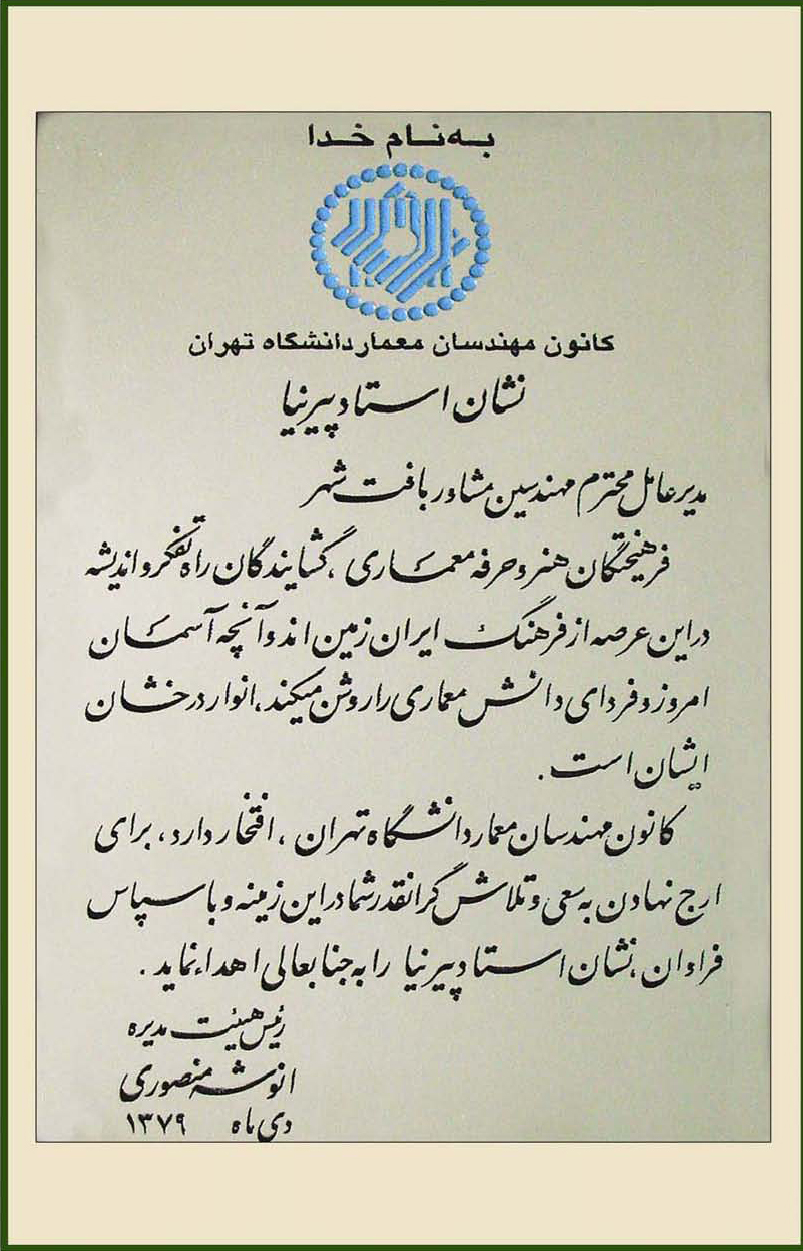 به نام خدا
کانون مهندسان معمار دانشگاه تهران
نشان استاد پیرنیا
مدیرعامل محترم مهندسین مشاور بافت شهر
فرهیختگان هنر و حرفه معماری ، گشایندگان راه تفکر و اندیشه
در این عرصه از فرهنگ ایران زمین اند و آنچه آسمان
امروز و فردای دانش معماری را روشن میکند، انوار درخشان
ایشان است .
کانون مهندسان معمار دانشگاه تهران ، افتخار دارد، برای
ارج نهادن به سعی و تلاش گرانقدر شما در این زمینه و با سپاس
فراوان ، نشان استاد پیرنیا را به جنابعالی اهداء نماید .
رئیس هیئت مدیره
انوشه منصوری
دی ماه ۱۳۷۹